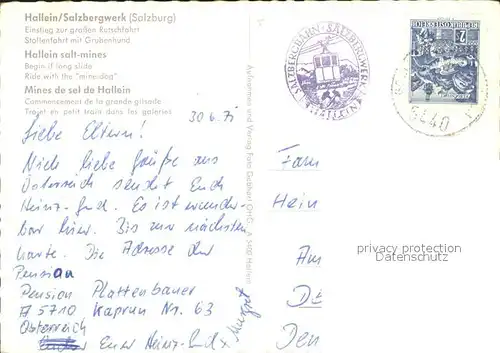 Hallein/Salzbergwerk (Salzburg)
Einstieg zur großen Rutschfahrt
Stollenfahrt mit Grubenhund
Hallein salt-mines
Begin if long slide
Ride with the "minedog"
Mines de sel de Hallein
Commencement de la grande glisade
Trajet en petit train dans les galeries
30.6.75
Liebe Eltern!
Viele liebe Grüße aus
Österreich sendet Euch
Heinz-Gud. Es ist wunder-
bar hier. Bis zur nächsten
Karte. Die Adresse der
Pension
Pension Plattenbauer
A 5710 Kaprun Nr. 63
Österreich
Euer Heinz-Gud x
Aufnahme und Verlag Foto
A 5400 Hallein
SALZBERGBAHN - SALZBERGWERK
HALLEIN
REPUBLIK ÖSTERREICH
2
5640
Fam
Hein
Am
Den
privacy protection
Datenschutz